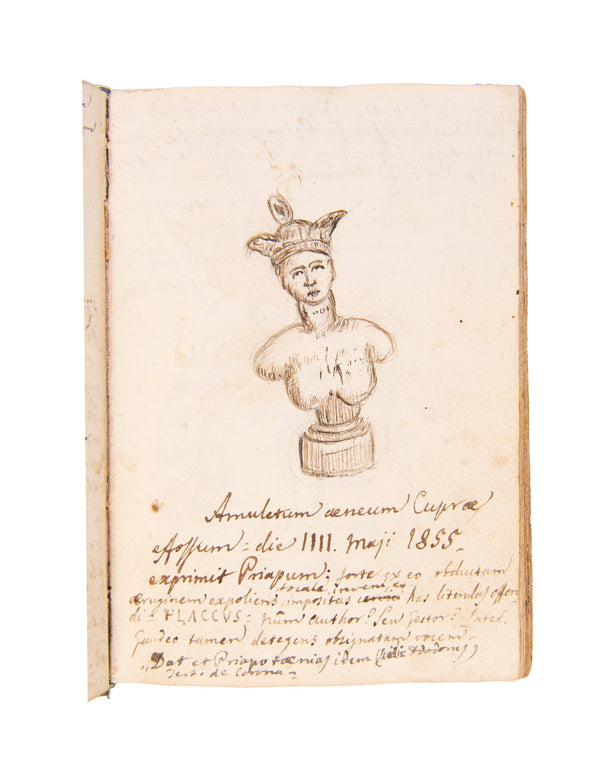 Amuletum æneum Cupræ
effossum = die IIII. Maji 1855.
exprimit Priapum; forte ex eo obductam
torale inveni, eo
æruginem expoliens, impositas has literulas offen
di = FLACCUS = num author? Seu Gestor? Latet.
Gaudeo tamen detegens obsignatam vocem =
"Dat et Priapo tænias idem
Tert. de Corona =